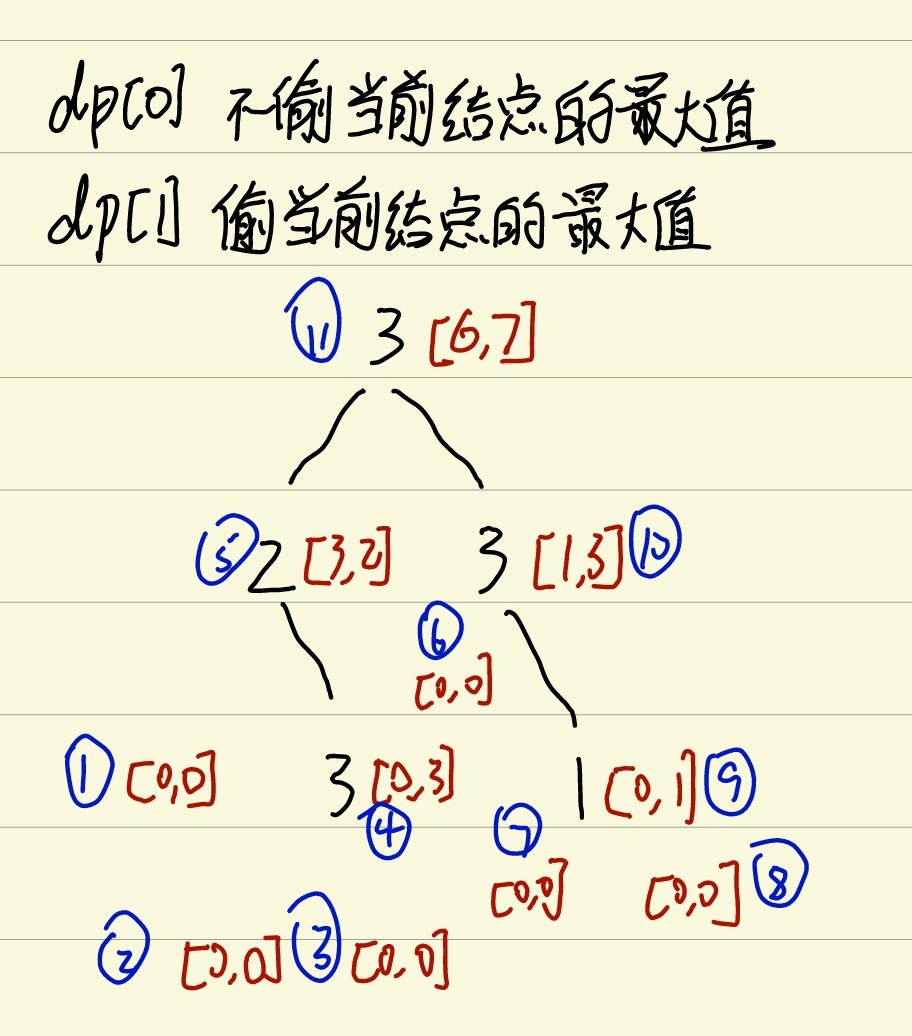 dp[0] 不偷当前结点的最大值
dp[1] 偷当前结点的最大值
⑪ 3 [6,7]
⑤ 2 [3,2] 3 [1,3] ⑩
⑥
[0,0]
① [0,0] 3 [0,3] 1 [0,1] ⑨
④ ⑦
[0,0] [0,0] ⑧
② [0,0] ③ [0,0]